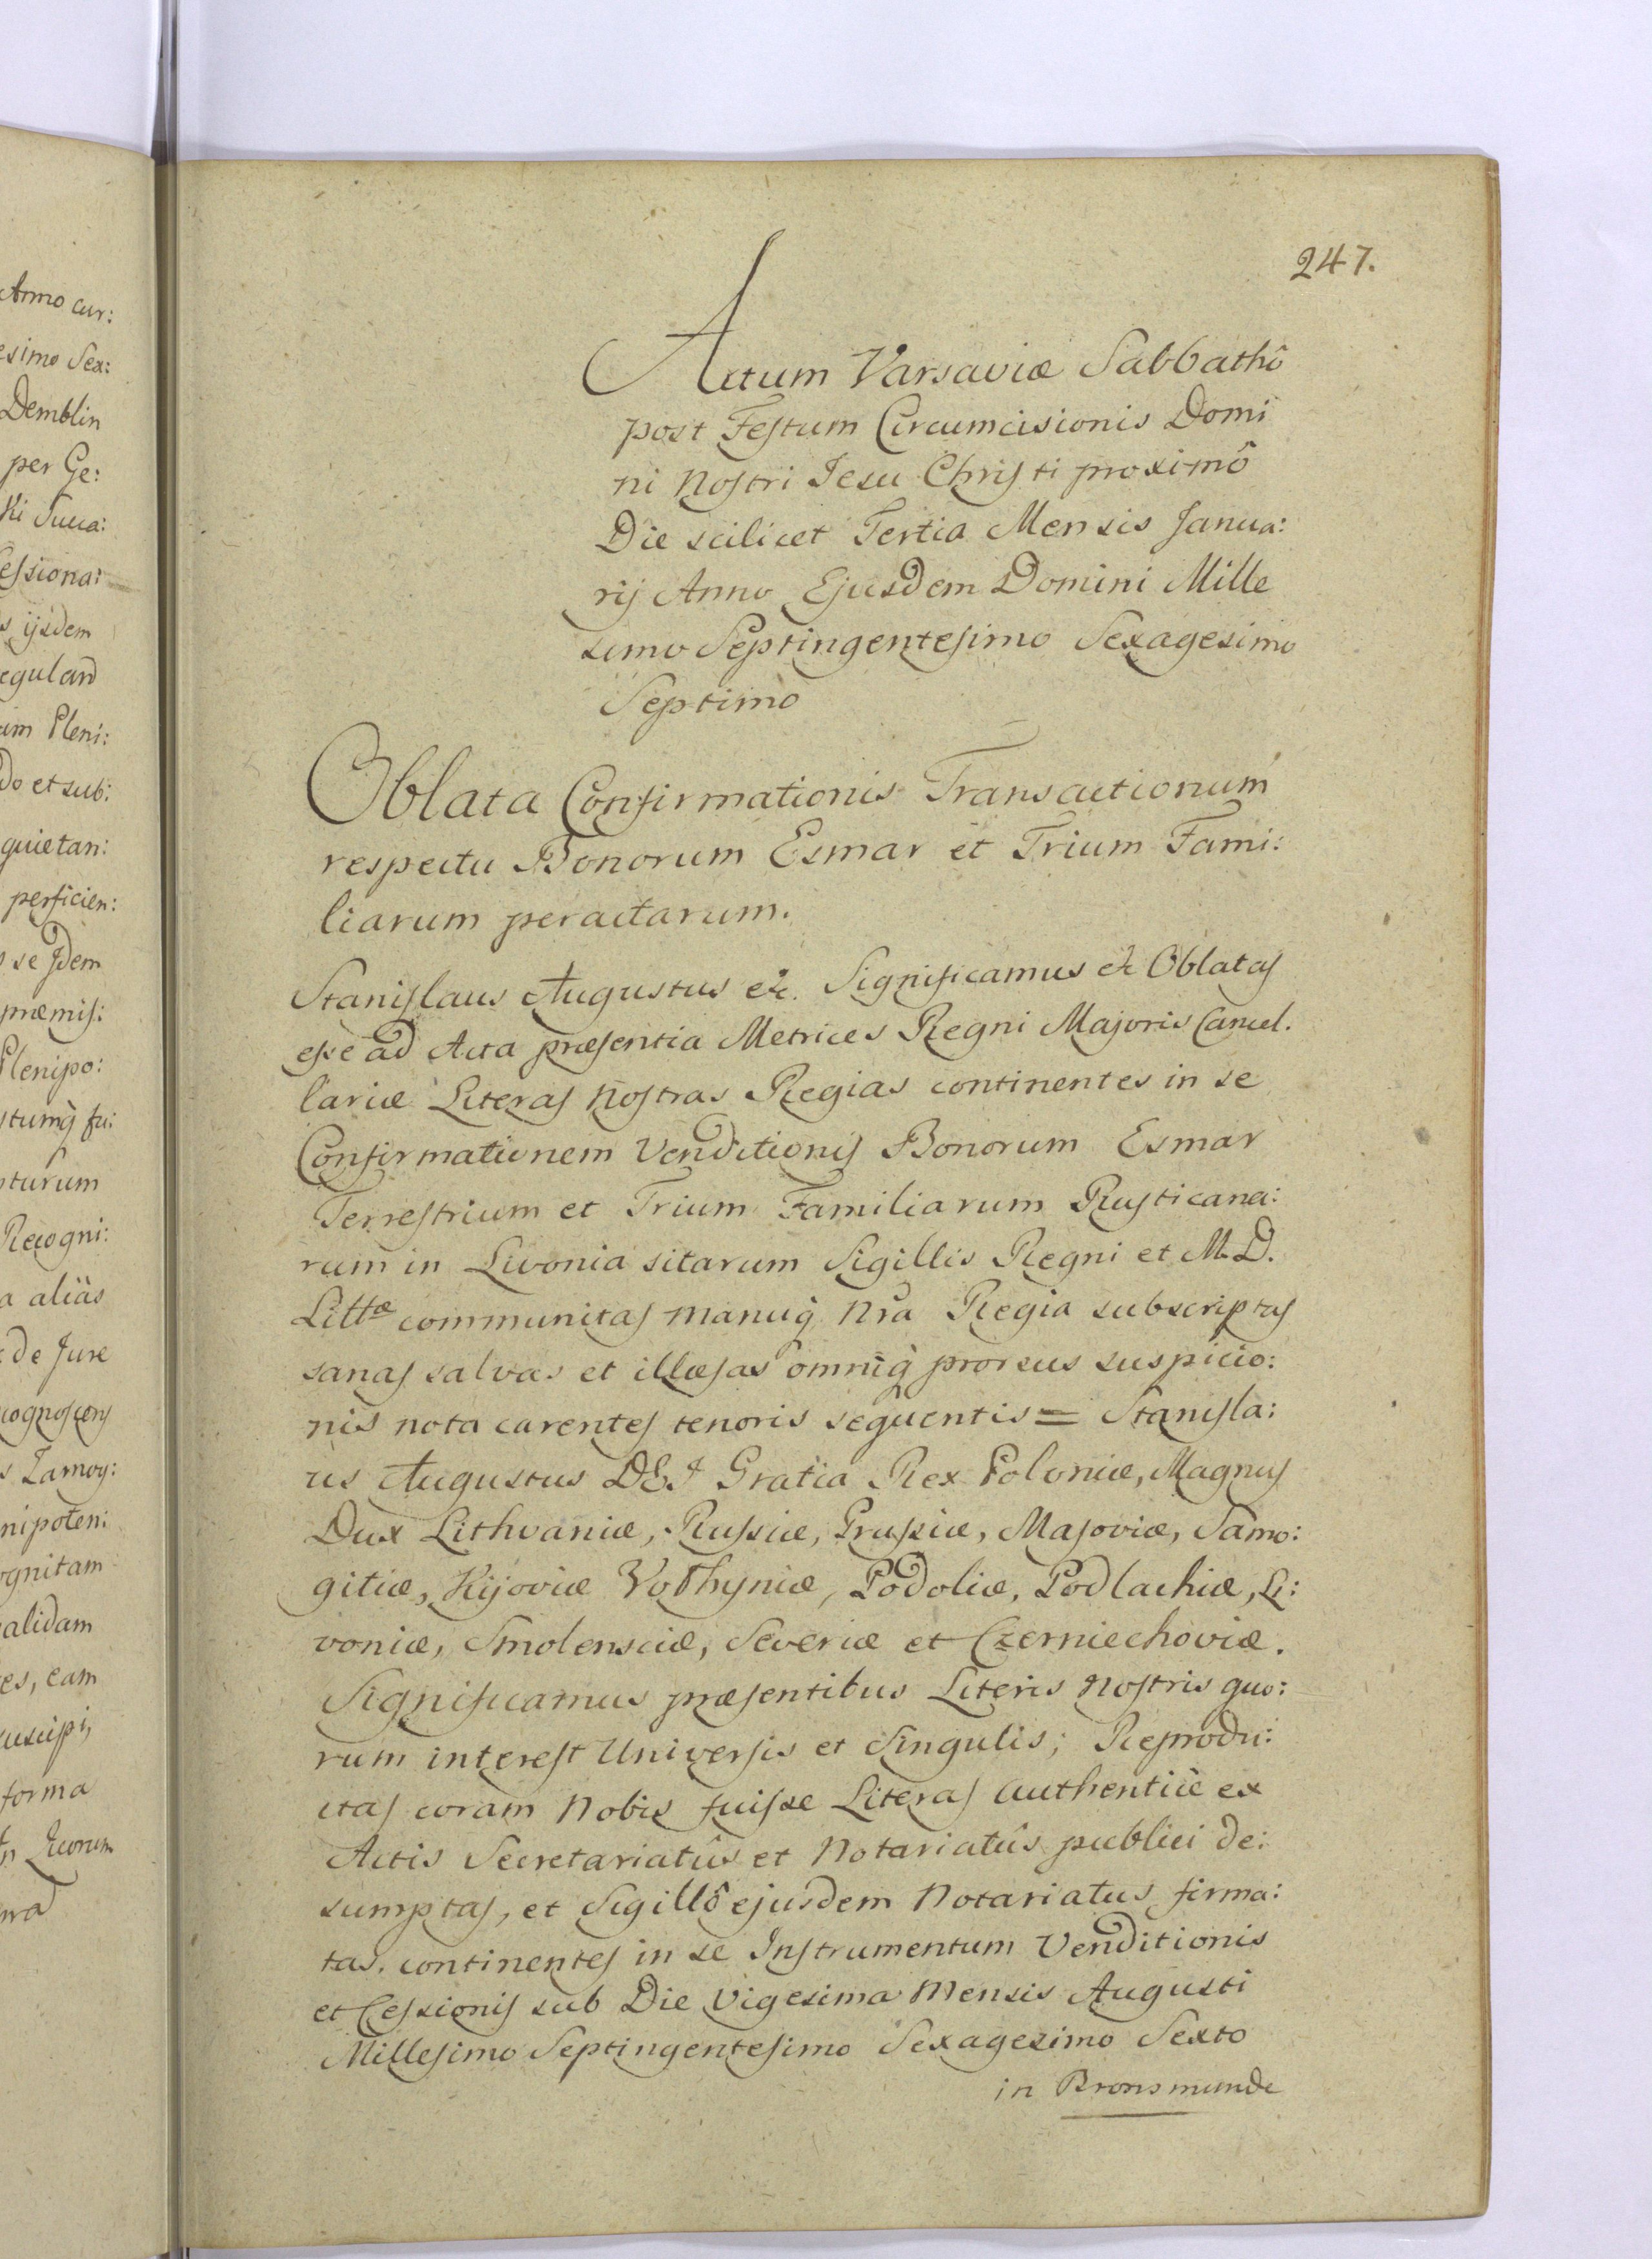 Anno cur:
esimo Sex:
Demblin
per Ge:
ki Succa:
essiona:
s ijsdem
eguland
um Pleni:
do et sub:
quietan:
perficien:
s se Jdem
præmis:
Plenipo:
stumq fu:
pturum
Recogni:
a aliàs
de Jure
cognoscens
s Zamoy:
nipoten:
ognitam
validam
es, eam
suscipi,
forma
247.
Actum Varsaviæ Sabbathô
post Festum Circumcisionis Domi
ni Nostri Jesu Christi proximô
Die scilicet Tertia Mensis Janua:
rij Anno Ejusdem Domini Mille
simo Septingentesimo Sexagesimo
Septimo
Oblata Confirmationis Transactionum
respectu Bonorum Esmar et Trium Fami:
liarum peractarum.
Stanislaus Augustus &c. Significamus &c Oblatas
esse ad Acta præsentia Metrices Regni Majoris Cancel.
lariæ Literas Nostras Regias continentes in se
Confirmationem Venditionis Bonorum Esmar
Terrestrium et Trium Familiarum Rusticana:
rum in Livonia sitarum Sigillis Regni et M. D.
Littæ communitas manuq̀ Nra Regia subscriptas
sanas salvas et illæsas omniq̀ prorsus suspicio:
nis nota carentes tenoris sequentis = Stanisla:
us Augustus DEI Gratia Rex Poloniæ, Magnus
Dux Lithvaniæ, Russiæ, Prussiæ, Masoviæ, Samo:
gitiæ, Kijoviæ Volhyniæ, Podoliæ, Podlachiæ, Li:
voniæ, Smolensciæ, Severiæ et Czerniechoviæ.
Significamus præsentibus Literis Nostris quo:
rum interest Universis et Singulis; Reprodu:
ctas coram Nobis fuisse Literas authenticè ex
Actis Secretariatûs et Notariatûs publici de:
sumptas, et Sigillô ejusdem Notariatus firma:
tas, continentes in se Instrumentum Venditionis
et Cessionis sub Die Vigesima Mensis Augusti
Millesimo Septingentesimo Sexagesimo Sexto
in Bronsmunde